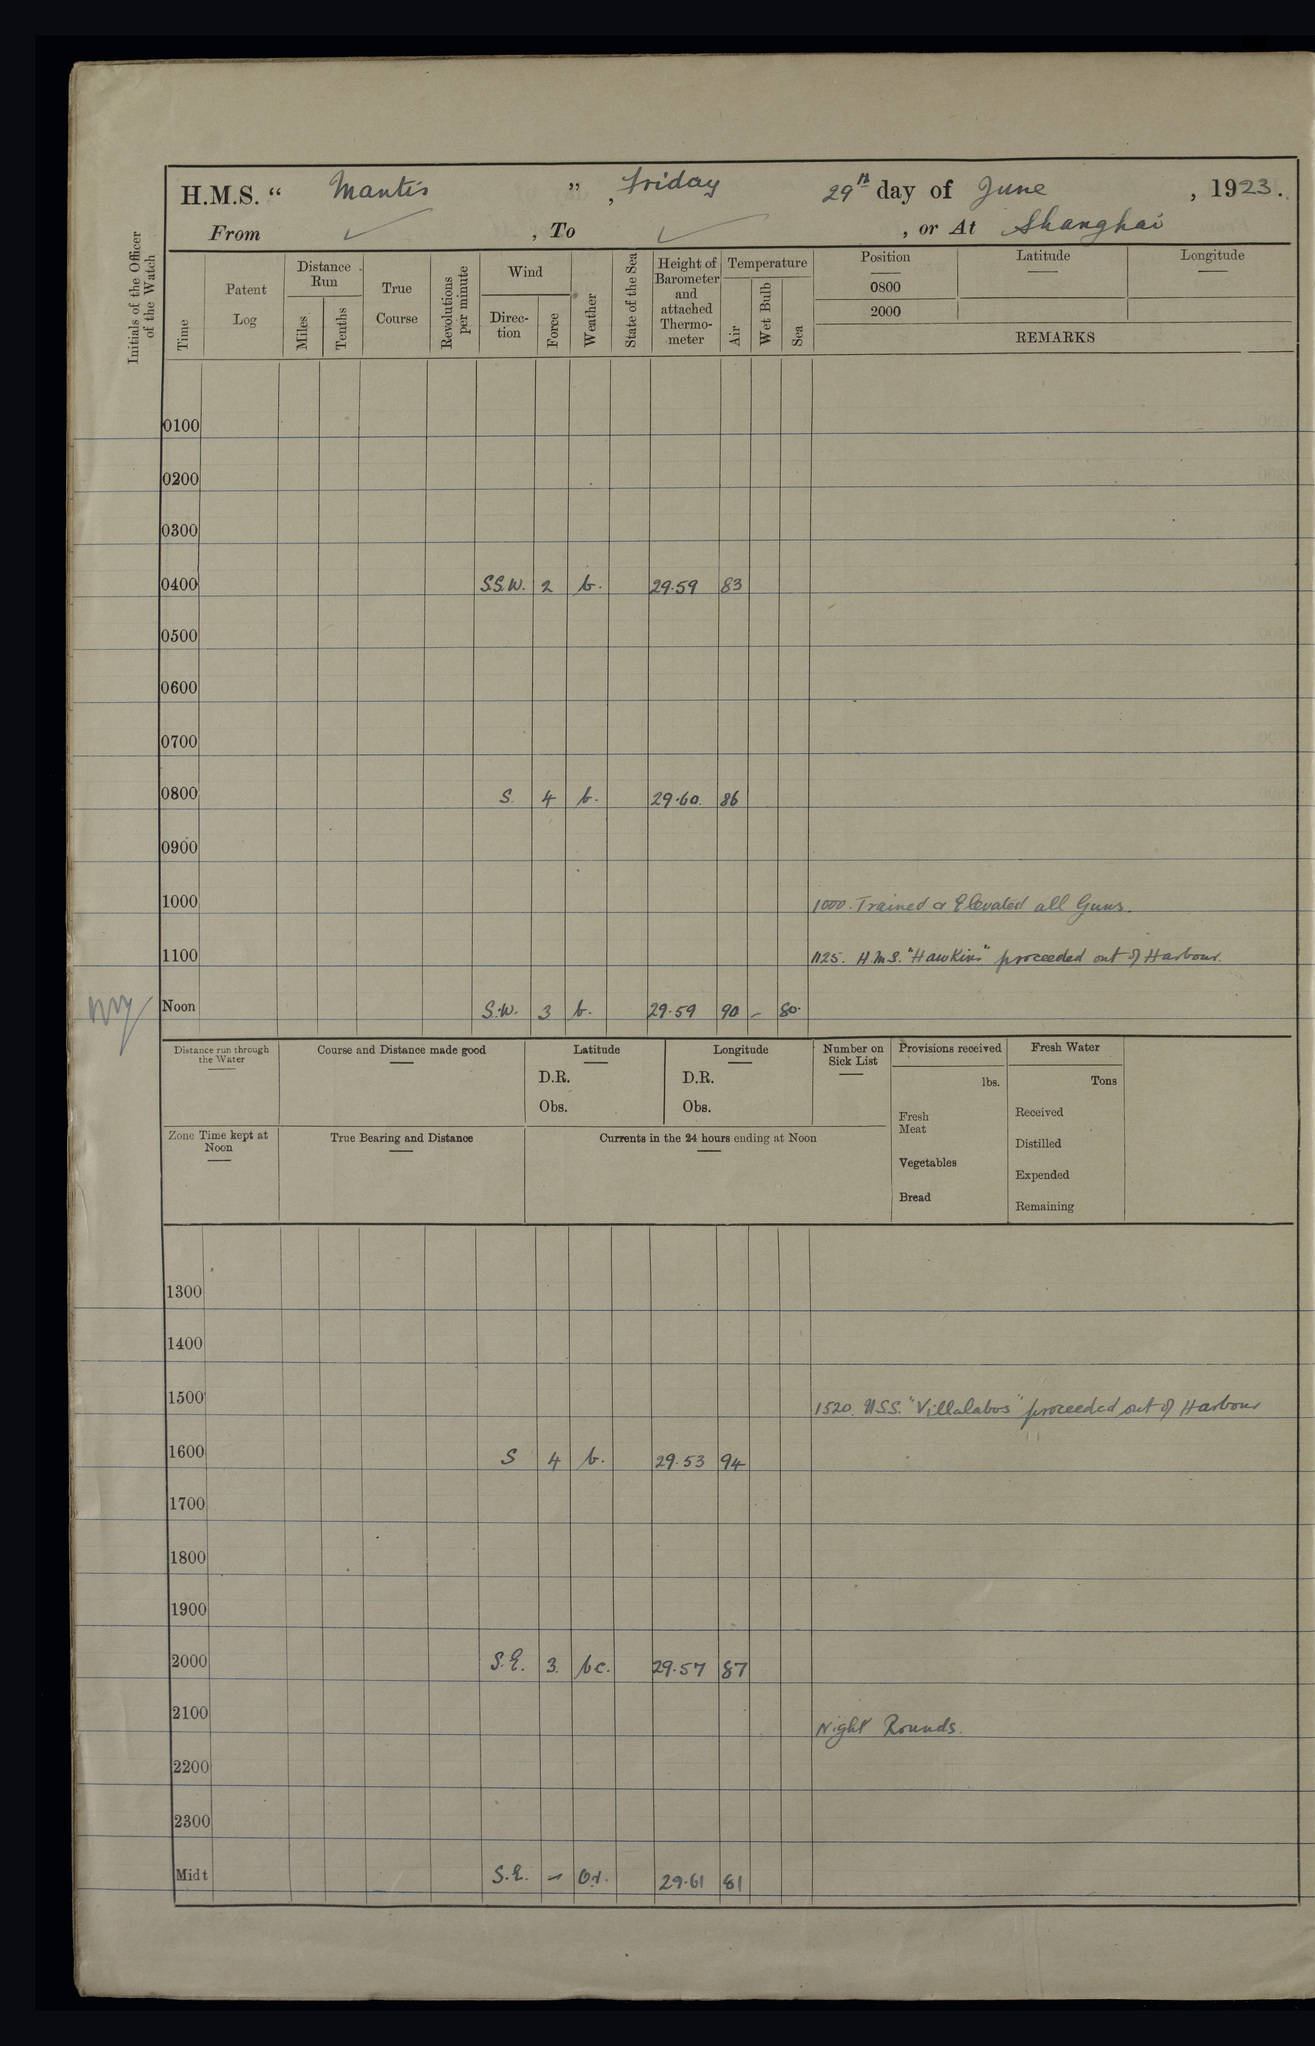 H.M.S. “ Mantis ”, Friday 29th day of June, 1923.
From ✓, To ✓, or At Shanghai
Initials of the Officer of the Watch
Time
Patent Log
Distance Run
Miles
Tenths
True Course
Revolutions per minute
Wind
Direc-tion
Force
Weather
State of the Sea
Height of Barometer and attached Thermo-meter
Temperature
Air
Wet Bulb
Sea
Position
0800
2000
Latitude
Longitude
REMARKS
0100
0200
0300
0400 S.S.W. 2 b. 29.59 83
0500
0600
0700
0800 S. 4 b. 29.60. 86
0900
1000 1000. Trained & Elevated all Guns.
1100 1125. H.M.S. "Hawkins" proceeded out of Harbour.
Noon S.W. 3 b. 29.59 90 - 80.
Distance run through the Water
Course and Distance made good
Latitude
D.R.
Obs.
Longitude
D.R.
Obs.
Number on Sick List
Provisions received
lbs.
Fresh Meat
Vegetables
Bread
Fresh Water
Tons
Received
Distilled
Expended
Remaining
Zone Time kept at Noon
True Bearing and Distance
Currents in the 24 hours ending at Noon
1300
1400
1500 1520. U.S.S. "Villalabos" proceeded out of Harbour
1600 S 4 b. 29.53 94
1700
1800
1900
2000 S.E. 3. bc. 29.57 87
2100 Night Rounds.
2200
2300
Midt S.E. - 29.61 81